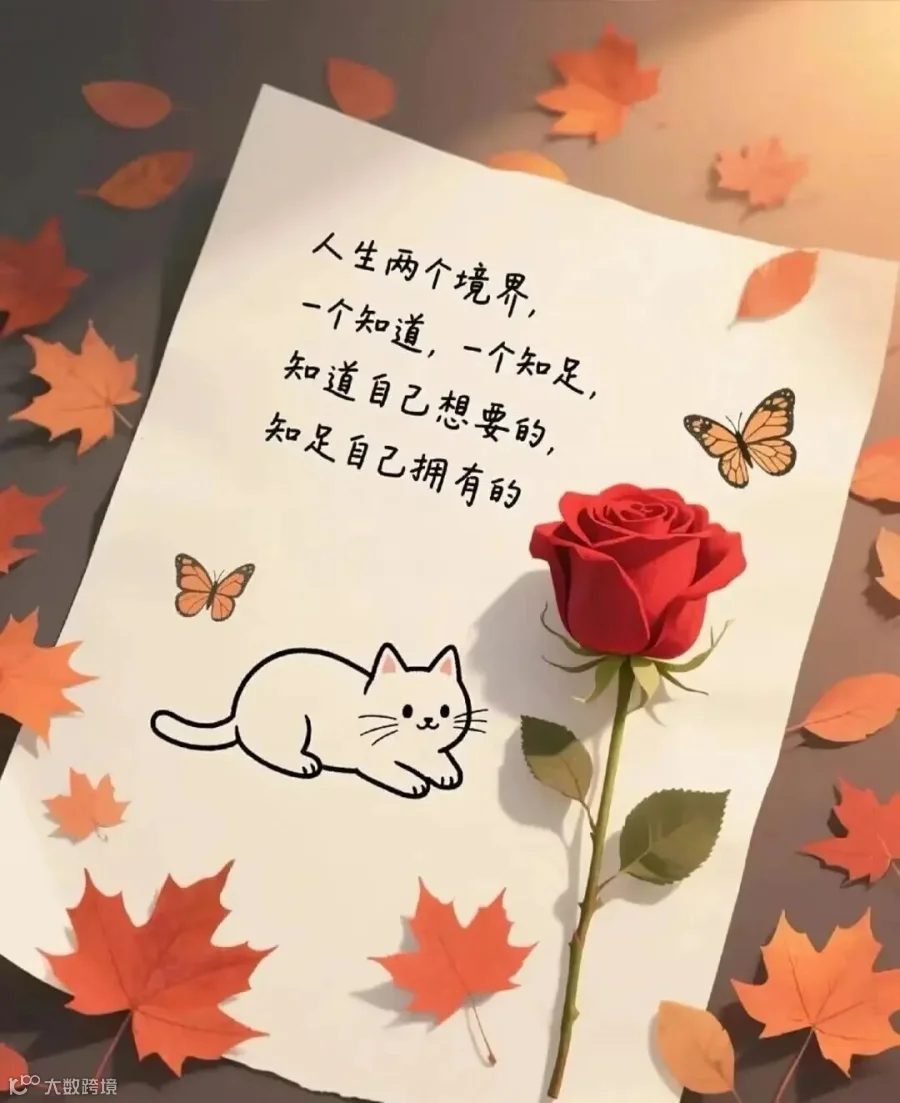 人生两个境界,
一个知道,一个知足,
知道自己想要的,
知足自己拥有的
大数跨境